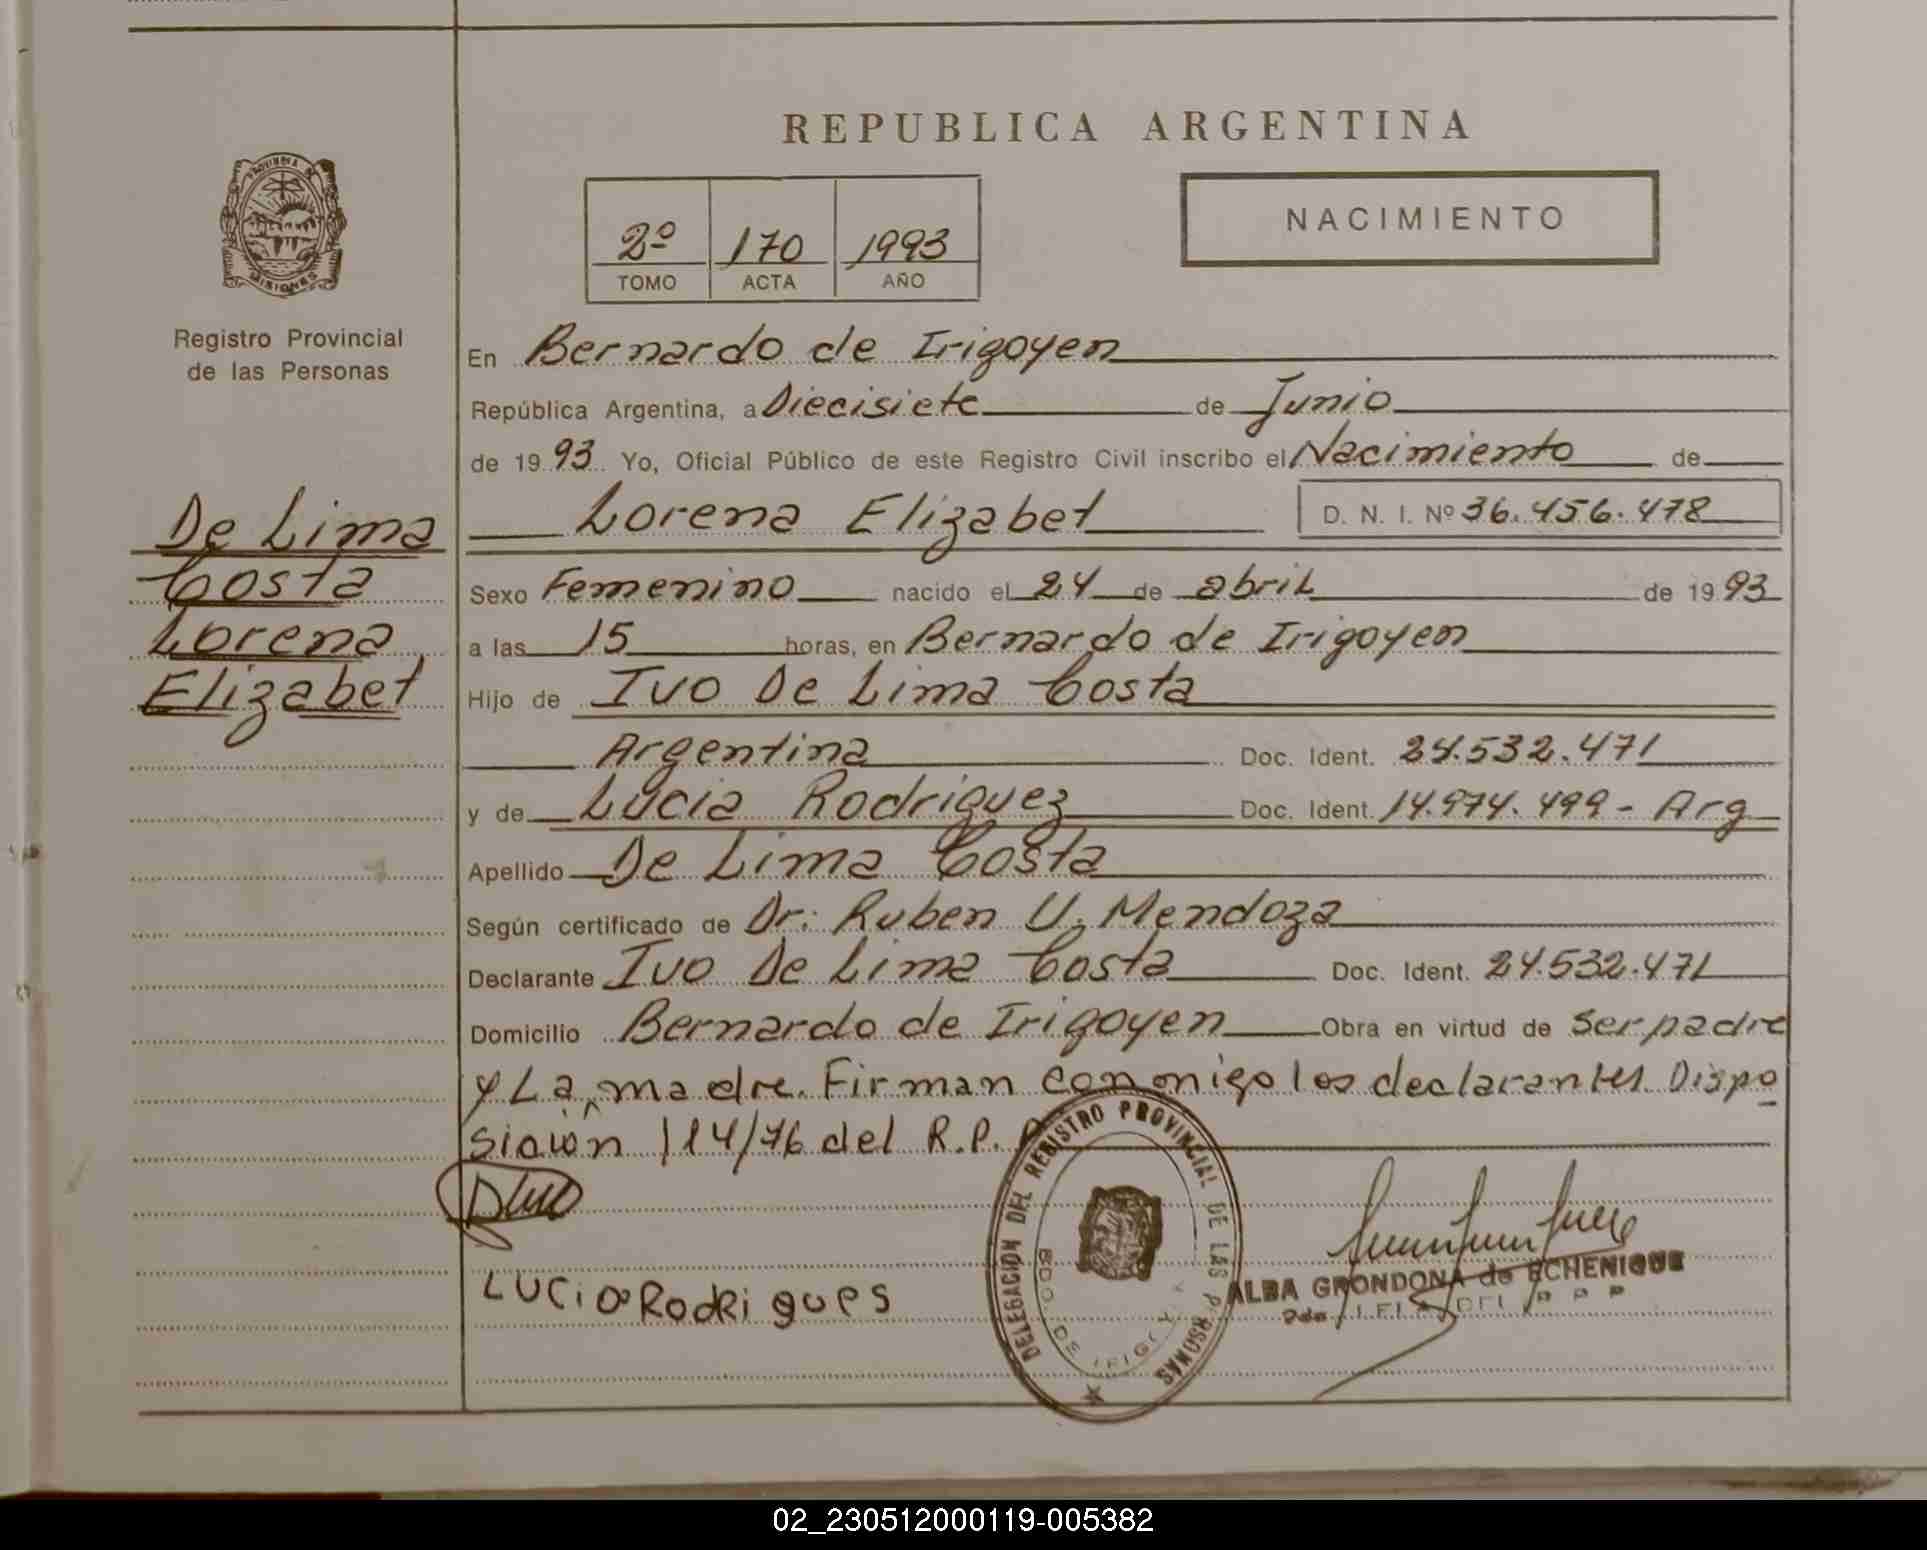 REPUBLICA ARGENTINA
PROVINCIA DE
MISIONES
Registro Provincial
de las Personas
2º 170 1993
TOMO ACTA AÑO
NACIMIENTO
En Bernardo de Irigoyen
República Argentina, a Diecisiete de Junio
de 19 93 Yo, Oficial Público de este Registro Civil inscribo el Nacimiento de
De Lima
Costa
Lorena
Elizabet
Lorena Elizabet D. N. I. Nº 36.456.478
Sexo Femenino nacido el 24 de abril de 19 93
a las 15 horas, en Bernardo de Irigoyen
Hijo de Ivo De Lima Costa
Argentina Doc. Ident. 24.532.471
y de Lucia Rodriguez Doc. Ident. 14.974.499 - Arg
Apellido De Lima Costa
Según certificado de Dr: Ruben U. Mendoza
Declarante Ivo De Lima Costa Doc. Ident. 24.532.471
Domicilio Bernardo de Irigoyen Obra en virtud de ser padre
y La madre. Firman conmigo los declarantes. Dispo
sición 114/76 del R.P.
LUCia Rodrigues
DELEGACIÓN DEL REGISTRO PROVINCIAL DE LAS PERSONAS
BDO. DE IRIGOY
ALBA GRONDONA de ECHENIQUE
02_230512000119-005382